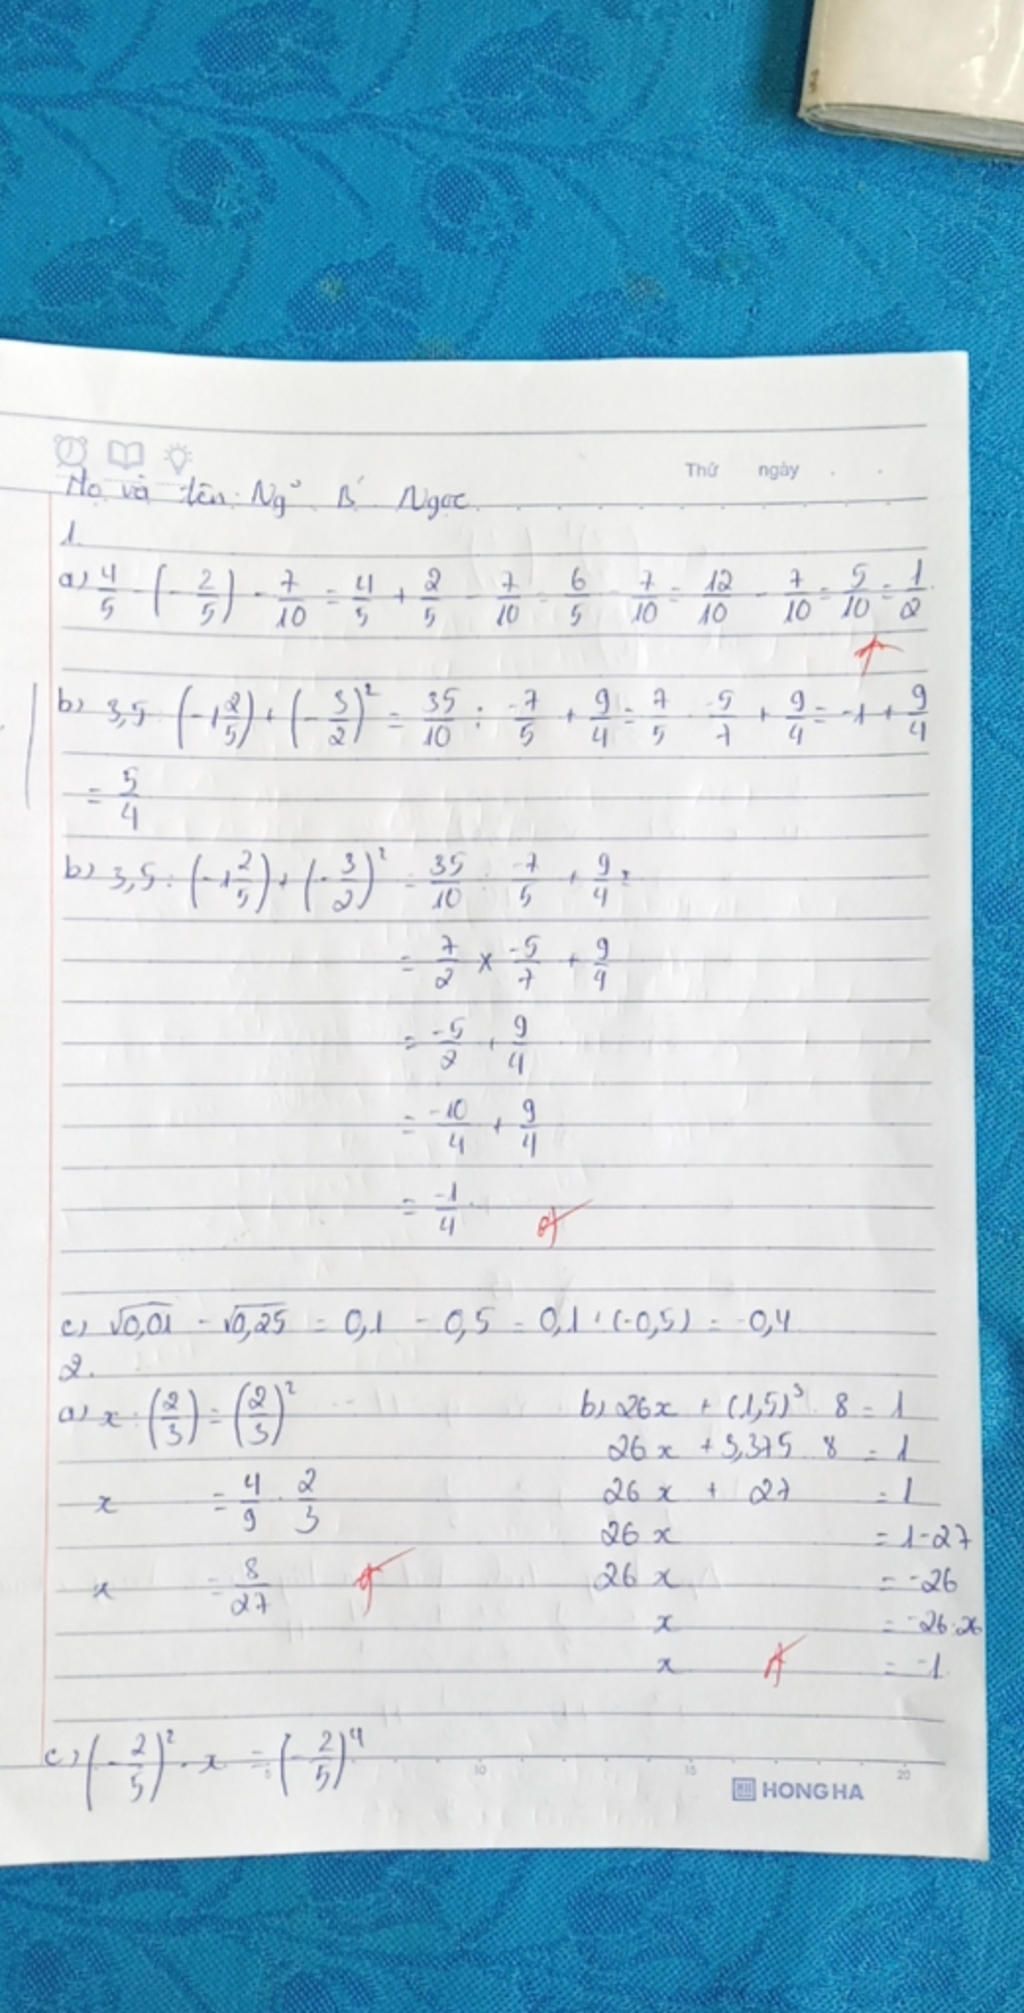 Thứ ngày
Họ và tên: Ngô B Ngọc
1.
a) 4/5 - (-2/5) - 7/10 = 4/5 + 2/5 - 7/10 = 6/5 - 7/10 = 12/10 - 7/10 = 5/10 = 1/2
b) 3,5 : (-1 2/5) + (-3/2)² = 35/10 : -7/5 + 9/4 = 7/5 . -5/7 + 9/4 = -1 + 9/4
= 5/4
b) 3,5 : (-1 2/5) + (-3/2)² = 35/10 : -7/5 + 9/4 =
= 7/2 × -5/7 + 9/4
= -5/2 + 9/4
= -10/4 + 9/4
= -1/4
c) √0,01 - √0,25 = 0,1 - 0,5 = 0,1 + (-0,5) = -0,4
2.
a) x : (2/3) = (2/3)²
x = 4/9 . 2/3
x = 8/27
b) 26x + (1,5)³ . 8 = 1
26x + 3,375 . 8 = 1
26x + 27 = 1
26x = 1-27
26x = -26
x = -26:26
x = -1
c) (-2/5)² . x = (-2/5)⁴
5 10 15 20
HONG HA